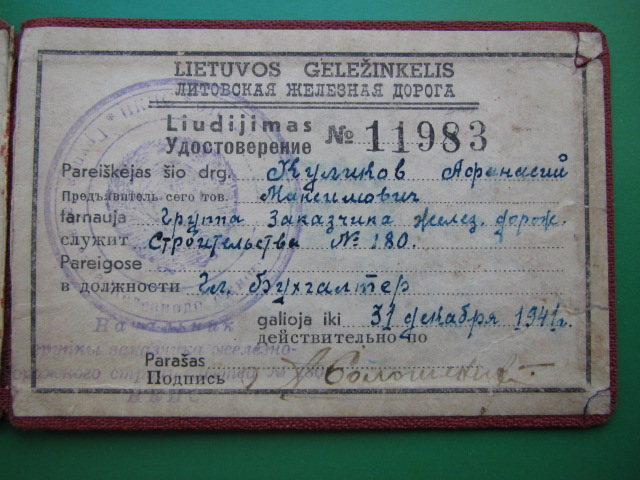 LIETUVOS GELEŽINKELIS
ЛИТОВСКАЯ ЖЕЛЕЗНАЯ ДОРОГА
Liudijimas
Удостоверение № 11983
Pareiškėjas šio drg. Куликов Афанасий
Предъявитель сего тов. Максимович
tarnauja Группа Заказчика желез. дорож.
служит Строительства № 180.
Pareigose
в должности Гл. Бухгалтер
Начальник
galioja iki 31 декабря 1941г.
действительно по
группы заказчика железно-
Parašas
Подпись
НКПС